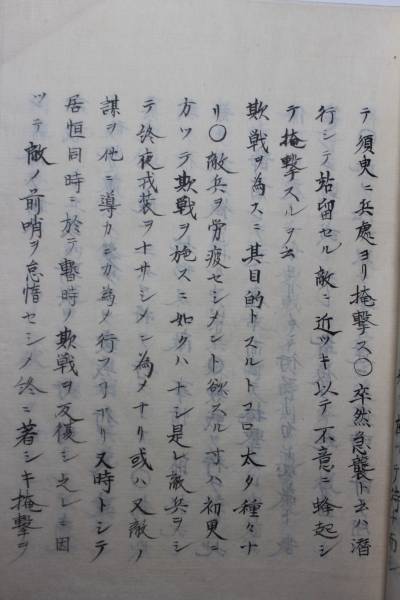 テ須臾ニ兵處ヨリ掩撃ス〇卒然急襲ト云ハ潜
行シテ站留セル敵ニ近ツキ以テ不意ニ蜂起シ
テ掩撃スルヲ云
欺戦ヲ為スニ其目的トスルトコロ太タ種々ナ
リ〇敵兵ヲ労疲セシメント欲スル寸ハ初更ニ
方ツテ欺戦ヲ施スニ如クハナシ是レ敵兵ヲシ
テ終夜戎装ヲナサシメン為メナリ或ハ又敵ノ
謀ヲ他ニ導カンカ為メ行フヿアリ又時トシテ
居恒同時ニ於テ暫時ノ欺戦ヲ反復シ之レニ因
ツテ敵ノ前哨ヲ怠惰セシメ終ニ著シキ掩撃ヲ